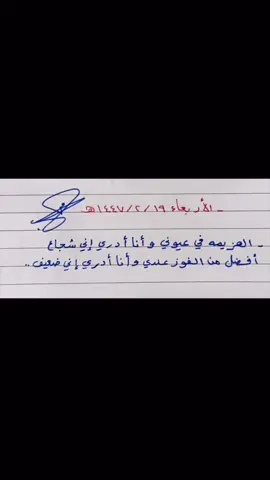 - الأربعاء ١٤٤٧/٢/١٩هـ
- الهزيمه في عيوني وأنا أدري إني شجاع
أفضل من الفوز عندي وأنا أدري إني ضعيف ..